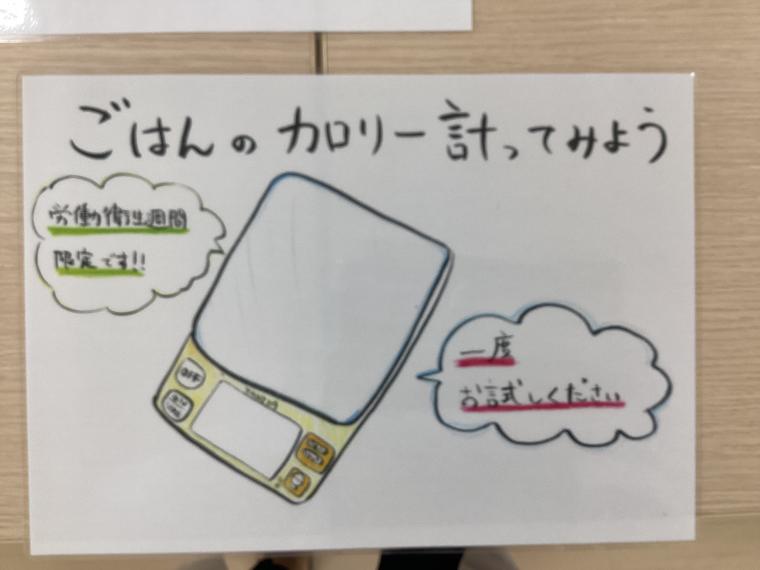 ごはんのカロリー計ってみよう
労働衛生週間
限定です!!
一度
お試しください